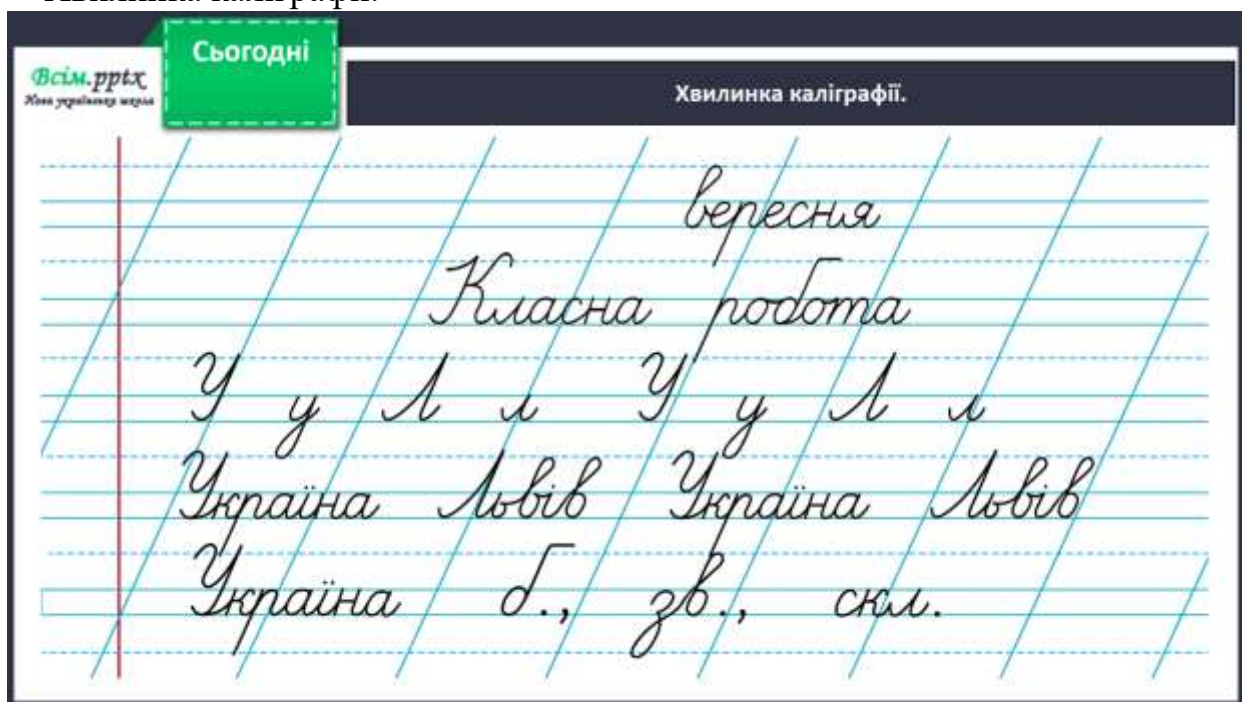 Хвилинка каліграфії.
Сьогодні
Всім.pptx
Нова українська школа
Хвилинка каліграфії.
вересня
Класна робота
У у Л л У у Л л
Україна Львів Україна Львів
Україна б., зв., скл.